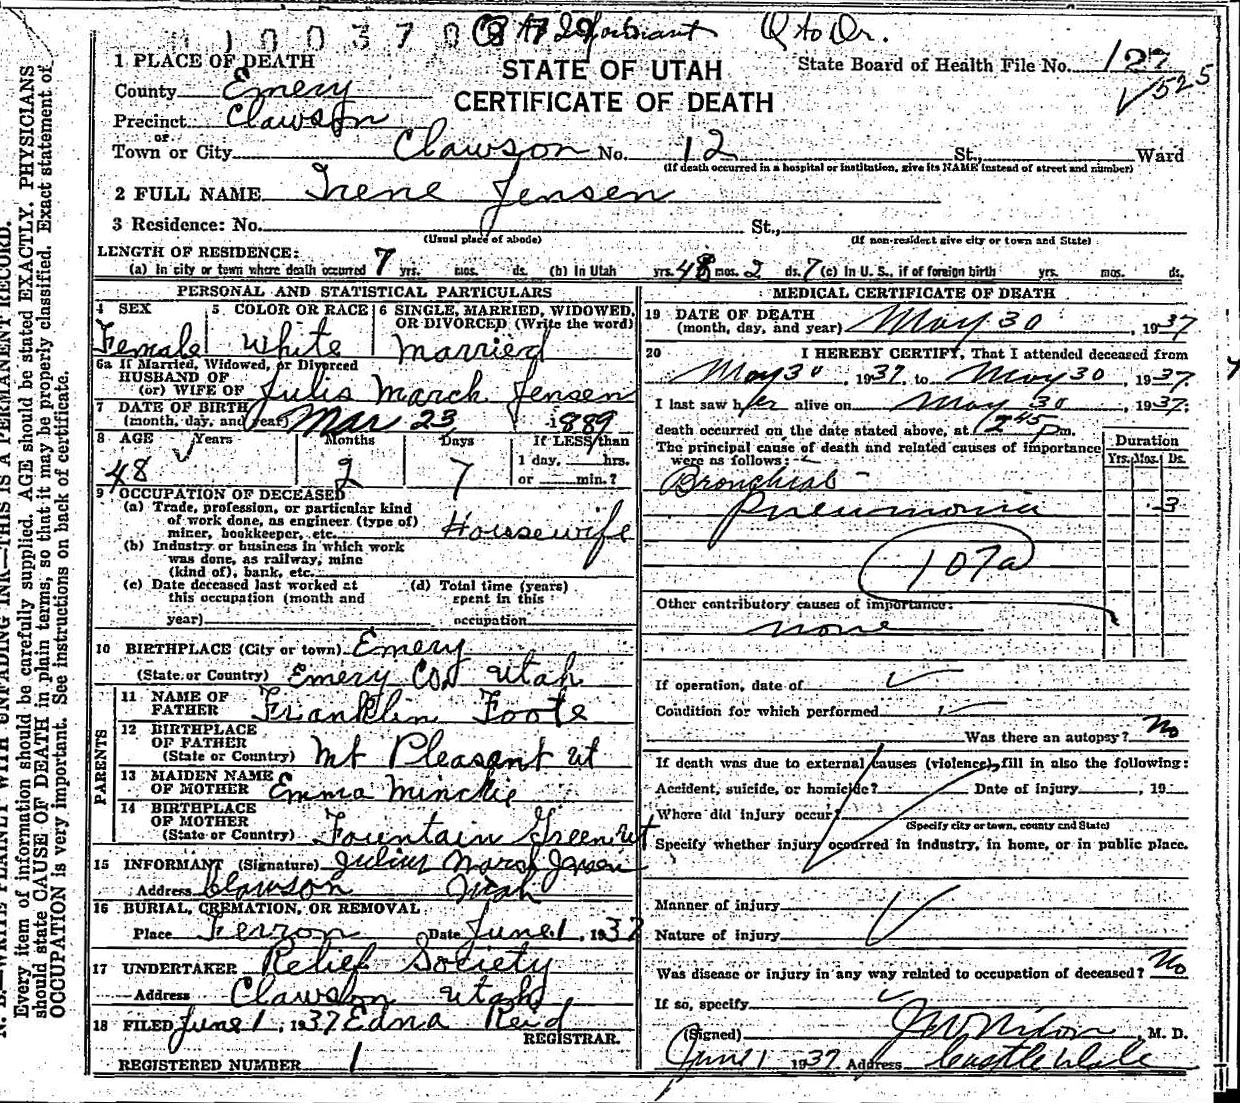 Q to Dr.
1 PLACE OF DEATH
STATE OF UTAH
CERTIFICATE OF DEATH
State Board of Health File No. 127
525
County Emery
Precinct Clawson
or
Town or City Clawson No. 12 St., Ward
(If death occurred in a hospital or institution, give its NAME instead of street and number)
2 FULL NAME Irene Jensen
3 Residence: No. St.,
(Usual place of abode) (If non-resident give city or town and State)
LENGTH OF RESIDENCE:
(a) In city or town where death occurred 7 yrs. mos. ds. (b) In Utah yrs. 48 mos. 2 ds. 7 (c) In U. S., if of foreign birth yrs. mos. ds.
PERSONAL AND STATISTICAL PARTICULARS
4 SEX
Female
5 COLOR OR RACE
White
6 SINGLE, MARRIED, WIDOWED,
OR DIVORCED (Write the word)
Married
6a If Married, Widowed, or Divorced
HUSBAND OF
(or) WIFE OF Julis March Jensen
7 DATE OF BIRTH
(month, day, and year) Mar 23 -1889
8 AGE Years Months Days If LESS than
1 day, hrs.
or min.?
48 2 7
9 OCCUPATION OF DECEASED
(a) Trade, profession, or particular kind
of work done, as engineer (type of)
miner, bookkeeper, etc. Housewife
(b) Industry or business in which work
was done, as railway, mine
(kind of), bank, etc.
(c) Date deceased last worked at
this occupation (month and
year)
(d) Total time (years)
spent in this
occupation
10 BIRTHPLACE (City or town) Emery
(State or Country) Emery Co. Utah
PARENTS
11 NAME OF
FATHER Franklin Foote
12 BIRTHPLACE
OF FATHER
(State or Country) Mt Pleasant Ut
13 MAIDEN NAME
OF MOTHER Emma Minckie
14 BIRTHPLACE
OF MOTHER
(State or Country) Fountain Green Ut
15 INFORMANT (Signature) Julius Marsh Jensen
Address Clawson Utah
16 BURIAL, CREMATION, OR REMOVAL
Place Ferron Date June 1, 1937
17 UNDERTAKER Relief Society
Address Clawson Utah
18 FILED June 1, 1937 Edna Reid
REGISTRAR.
REGISTERED NUMBER 1
MEDICAL CERTIFICATE OF DEATH
19 DATE OF DEATH
(month, day, and year) May 30, 1937
20 I HEREBY CERTIFY, That I attended deceased from
May 30, 1937, to May 30, 1937
I last saw her alive on May 30, 1937;
death occurred on the date stated above, at 12 45 Pm.
The principal cause of death and related causes of importance
were as follows:
Duration
Yrs. Mos. Ds.
Bronchial
Pneumonia 3
107a
Other contributory causes of importance:
none
If operation, date of
Condition for which performed
Was there an autopsy? No
If death was due to external causes (violence), fill in also the following:
Accident, suicide, or homicide? Date of injury, 19
Where did injury occur?
(Specify city or town, county and State)
Specify whether injury occurred in industry, in home, or in public place.
Manner of injury
Nature of injury
Was disease or injury in any way related to occupation of deceased? No
If so, specify
(Signed) J W Nixon, M. D.
June 1 1937 Address Castle Dale
N. B.—WRITE PLAINLY WITH UNFADING INK—THIS IS A PERMANENT RECORD.
Every item of information should be carefully supplied. AGE should be stated EXACTLY. PHYSICIANS
should state CAUSE OF DEATH in plain terms, so that it may be properly classified. Exact statement of
OCCUPATION is very important. See instructions on back of certificate.